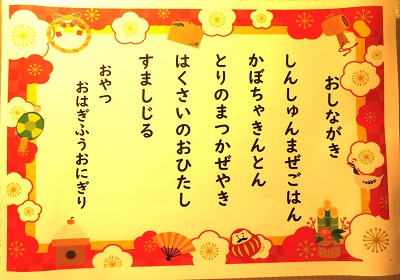 おしながき
しんしゅんまぜごはん
かぼちゃきんとん
とりのまつかぜやき
はくさいのおひたし
すましじる
おやつ
おはぎふうおにぎり